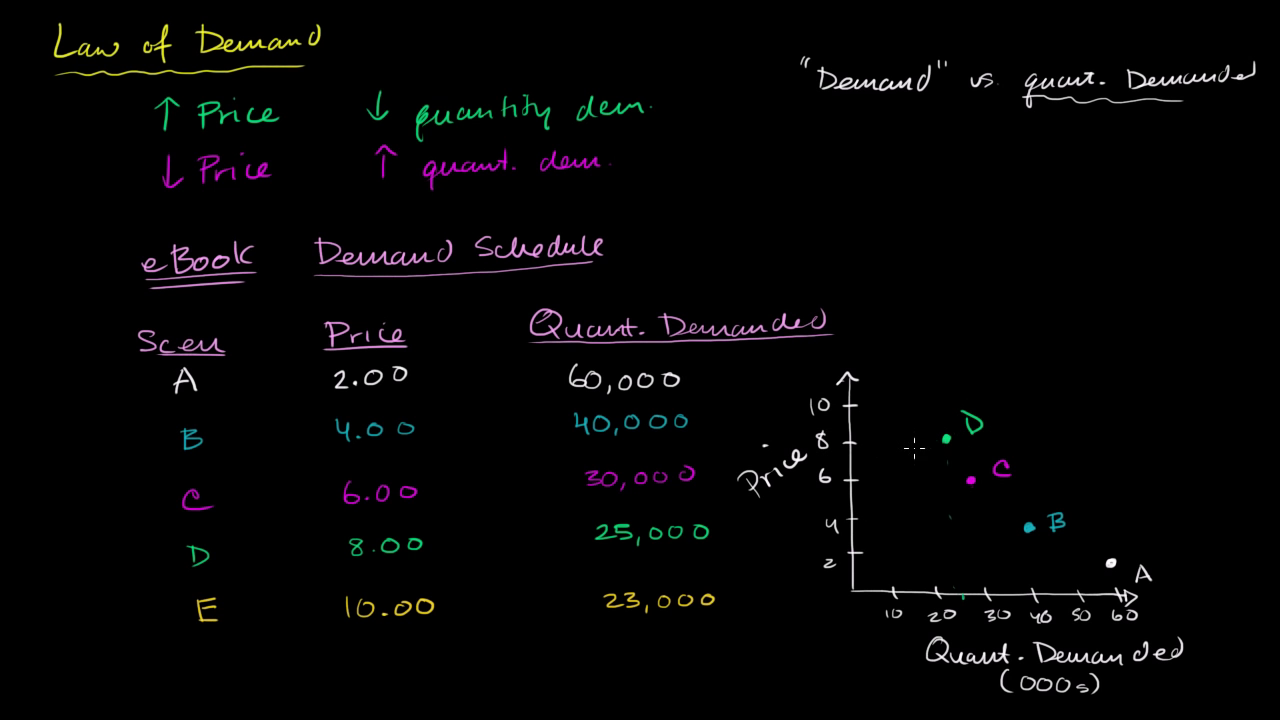 Law of Demand
"Demand" vs. quant. Demanded
↑ Price ↓ quantity dem.
↓ Price ↑ quant. dem.
eBook Demand Schedule
Scen Price Quant. Demanded
A 2.00 60,000
B 4.00 40,000
C 6.00 30,000
D 8.00 25,000
E 10.00 23,000
Price
10
8
6
4
2
D
C
B
A
10 20 30 40 50 60
Quant. Demanded
(000s)